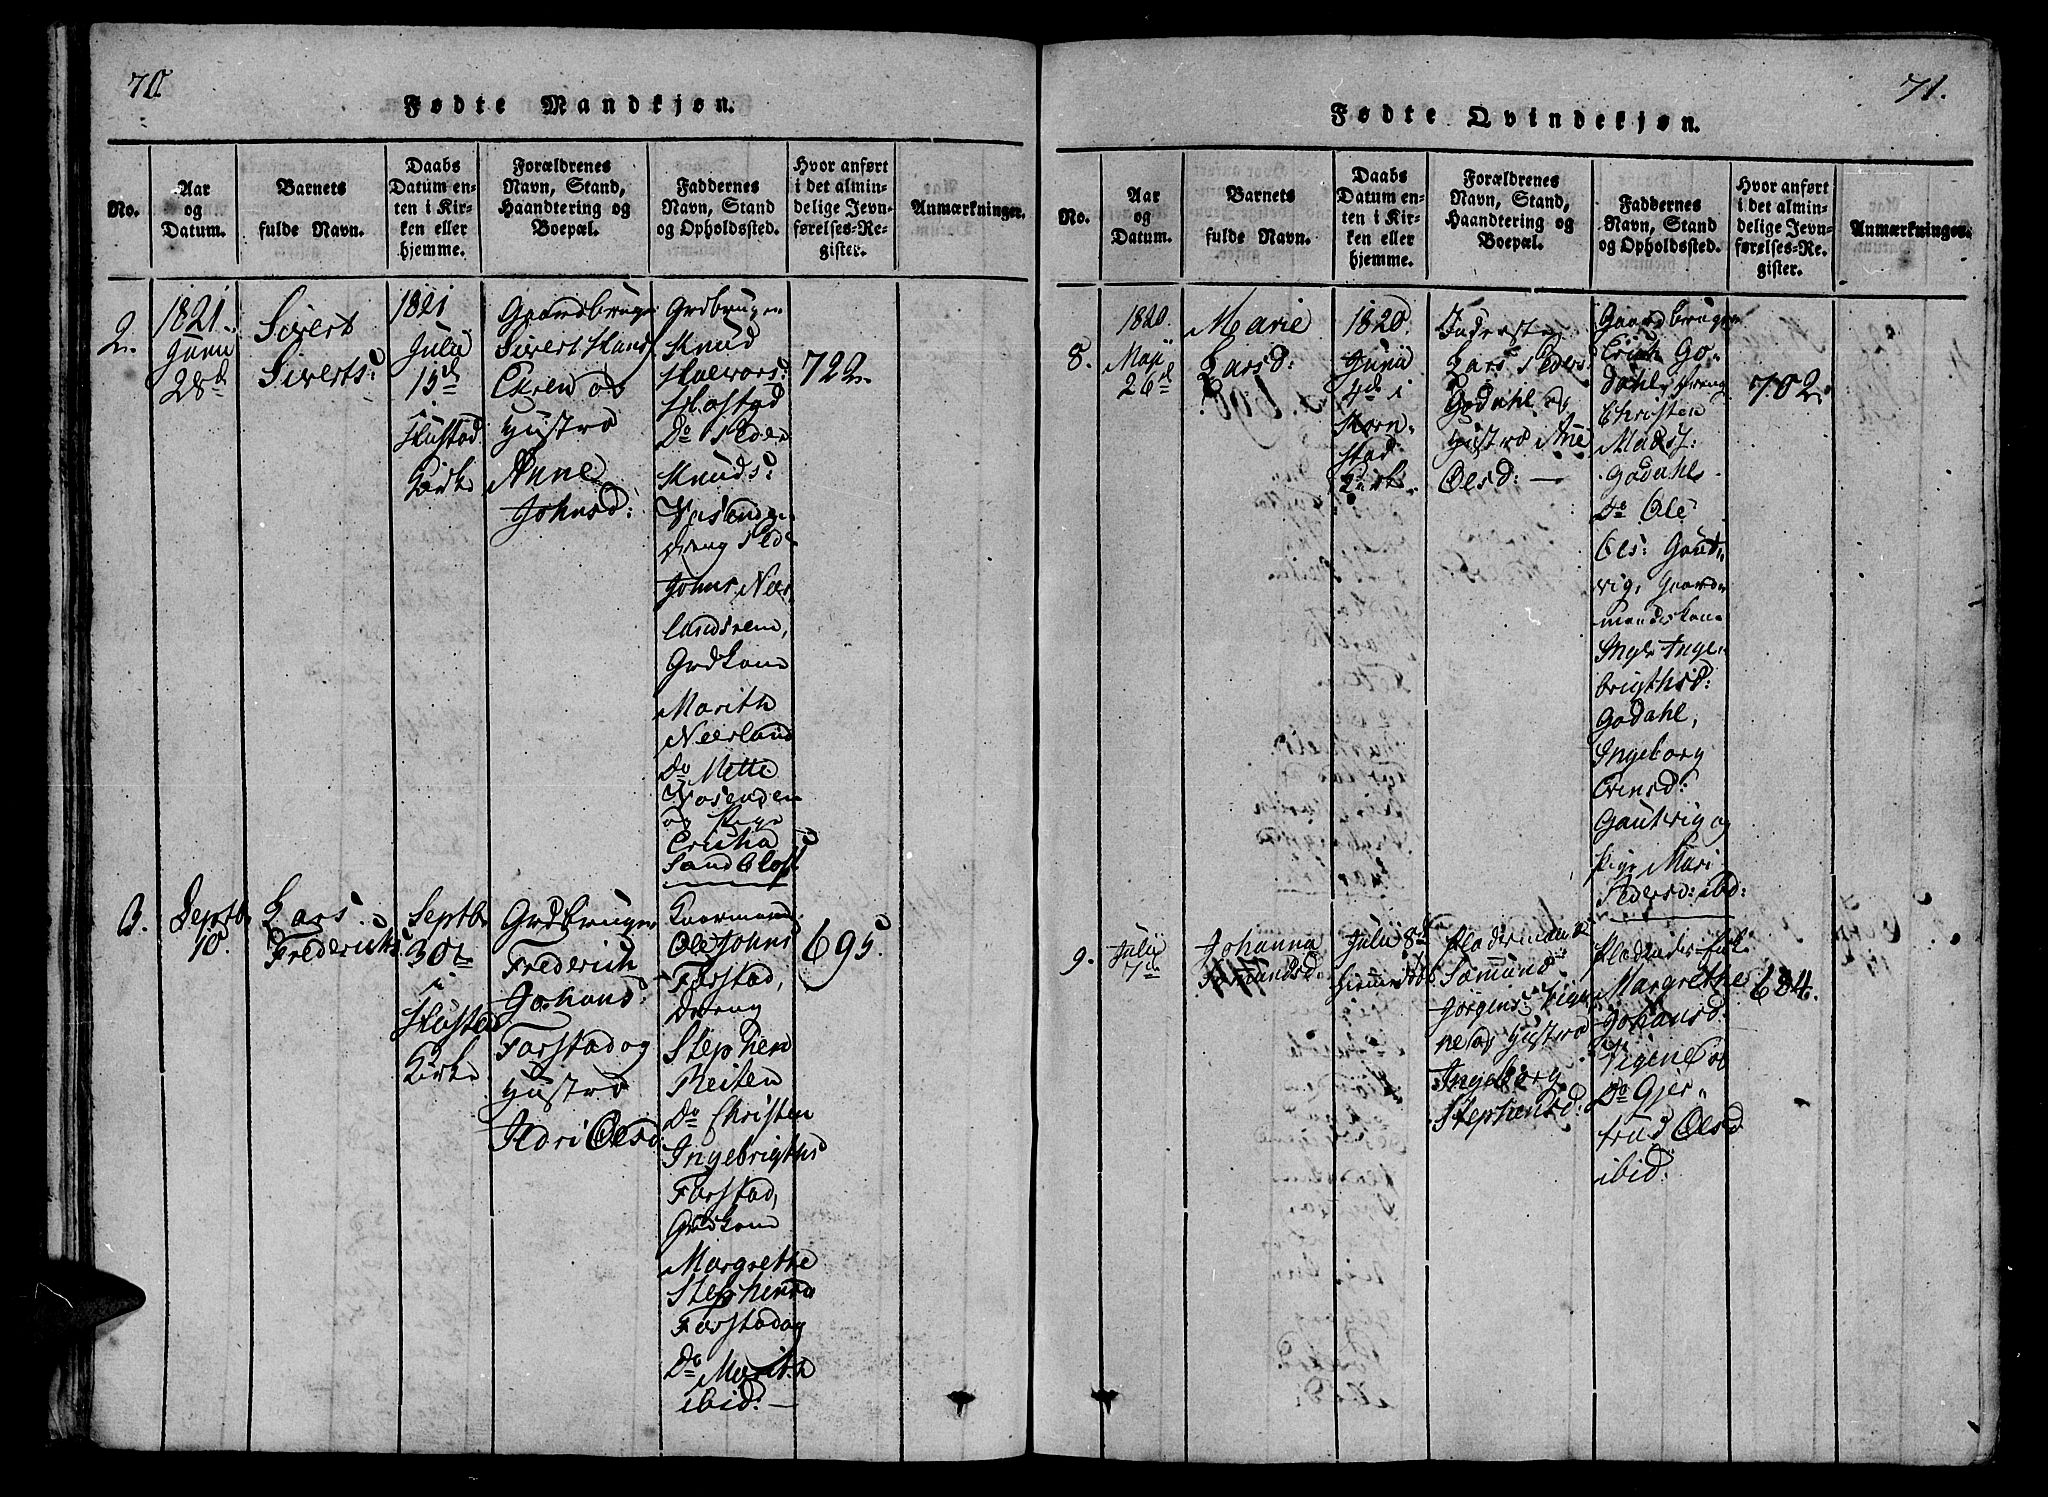 70.
Fødte Mandkjøn.
No.
Aar
og
Datum.
Barnets
fulde Navn.
Daabs
Datum en-
ten i Kir-
ken eller
hjemme.
Forældrenes
Navn, Stand,
Haandtering og
Boepæl.
Faddernes
Navn, Stand
og Opholdssted.
Hvor anført
i det almin-
delige Jevn-
førelses-Re-
gister.
Anmærkninger.
2.
1821.
Junii
28d
Sivert
Siverts:
1821
Julii
15d
i
Hustad
Kirke
Gaardbruger
Sivert Hans
Ekren og
Hustro
Anne
Johnsd:
Grdbruger
Knud
Halvors:
Hostad
Do Peder
Knuds:
Vasenden
Dreng Peder
Johns Neer
landsrem,
Grdkone
Marith
Neerland
Do Mette
Vasenden
og Pige
Ericha
Sandblost
722.
3.
Septbr
10.
Lars
Frederichs
Septbr
30te
i
Hustad
Kirke
Grdbruger
Frederich
Johans:
Farstad og
Hustro
Ildri Olsd
Kaarmand
Ole Johns
Farstad,
Dreng
Stephen
Reiten
Do Christen
Ingebrigths
Farstad,
Grdkone
Margrethe
Stephensd
Farstad og
Do Marith
ibid: —
695.
71.
Fødte Qvindekjøn.
No.
Aar
og
Datum.
Barnets
fulde Navn.
Daabs
Datum en-
ten i Kir-
ken eller
hjemme.
Forældrenes
Navn, Stand,
Haandtering og
Boepæl.
Faddernes
Navn, Stand
og Opholdssted.
Hvor anført
i det almin-
delige Jevn-
førelses-Re-
gister.
Anmærkninger.
8.
1820.
Maji
26d
Marie
Larsd:
1820.
Junii
4d i
Korn-
stad
Kirke
Inderste
Lars Peders
Godahl og
Hustro Ane
Olsd: —
Gaardbruger
Erich Go-
dahl, Dreng
Christen
Madss:
Godahl
Do Ole
Ols: Gaut-
vig, Gaard-
mandskone
Ingebrigthsd:
Godahl,
Ingeborg
Gautvig og
Pige Mari
Pedersd: ibd:
702.
9.
Julii
7d
Johanna
Samundsd
Julii 8d
hjemmedøbt
Pladsmand
Samund
Jørgens: Vige-
net og Hustro
Ingeborg
Stephensd:
Margrethe
Johansd:
Vigenet og
Do Gjer-
trud Olsd
ibid:
684.